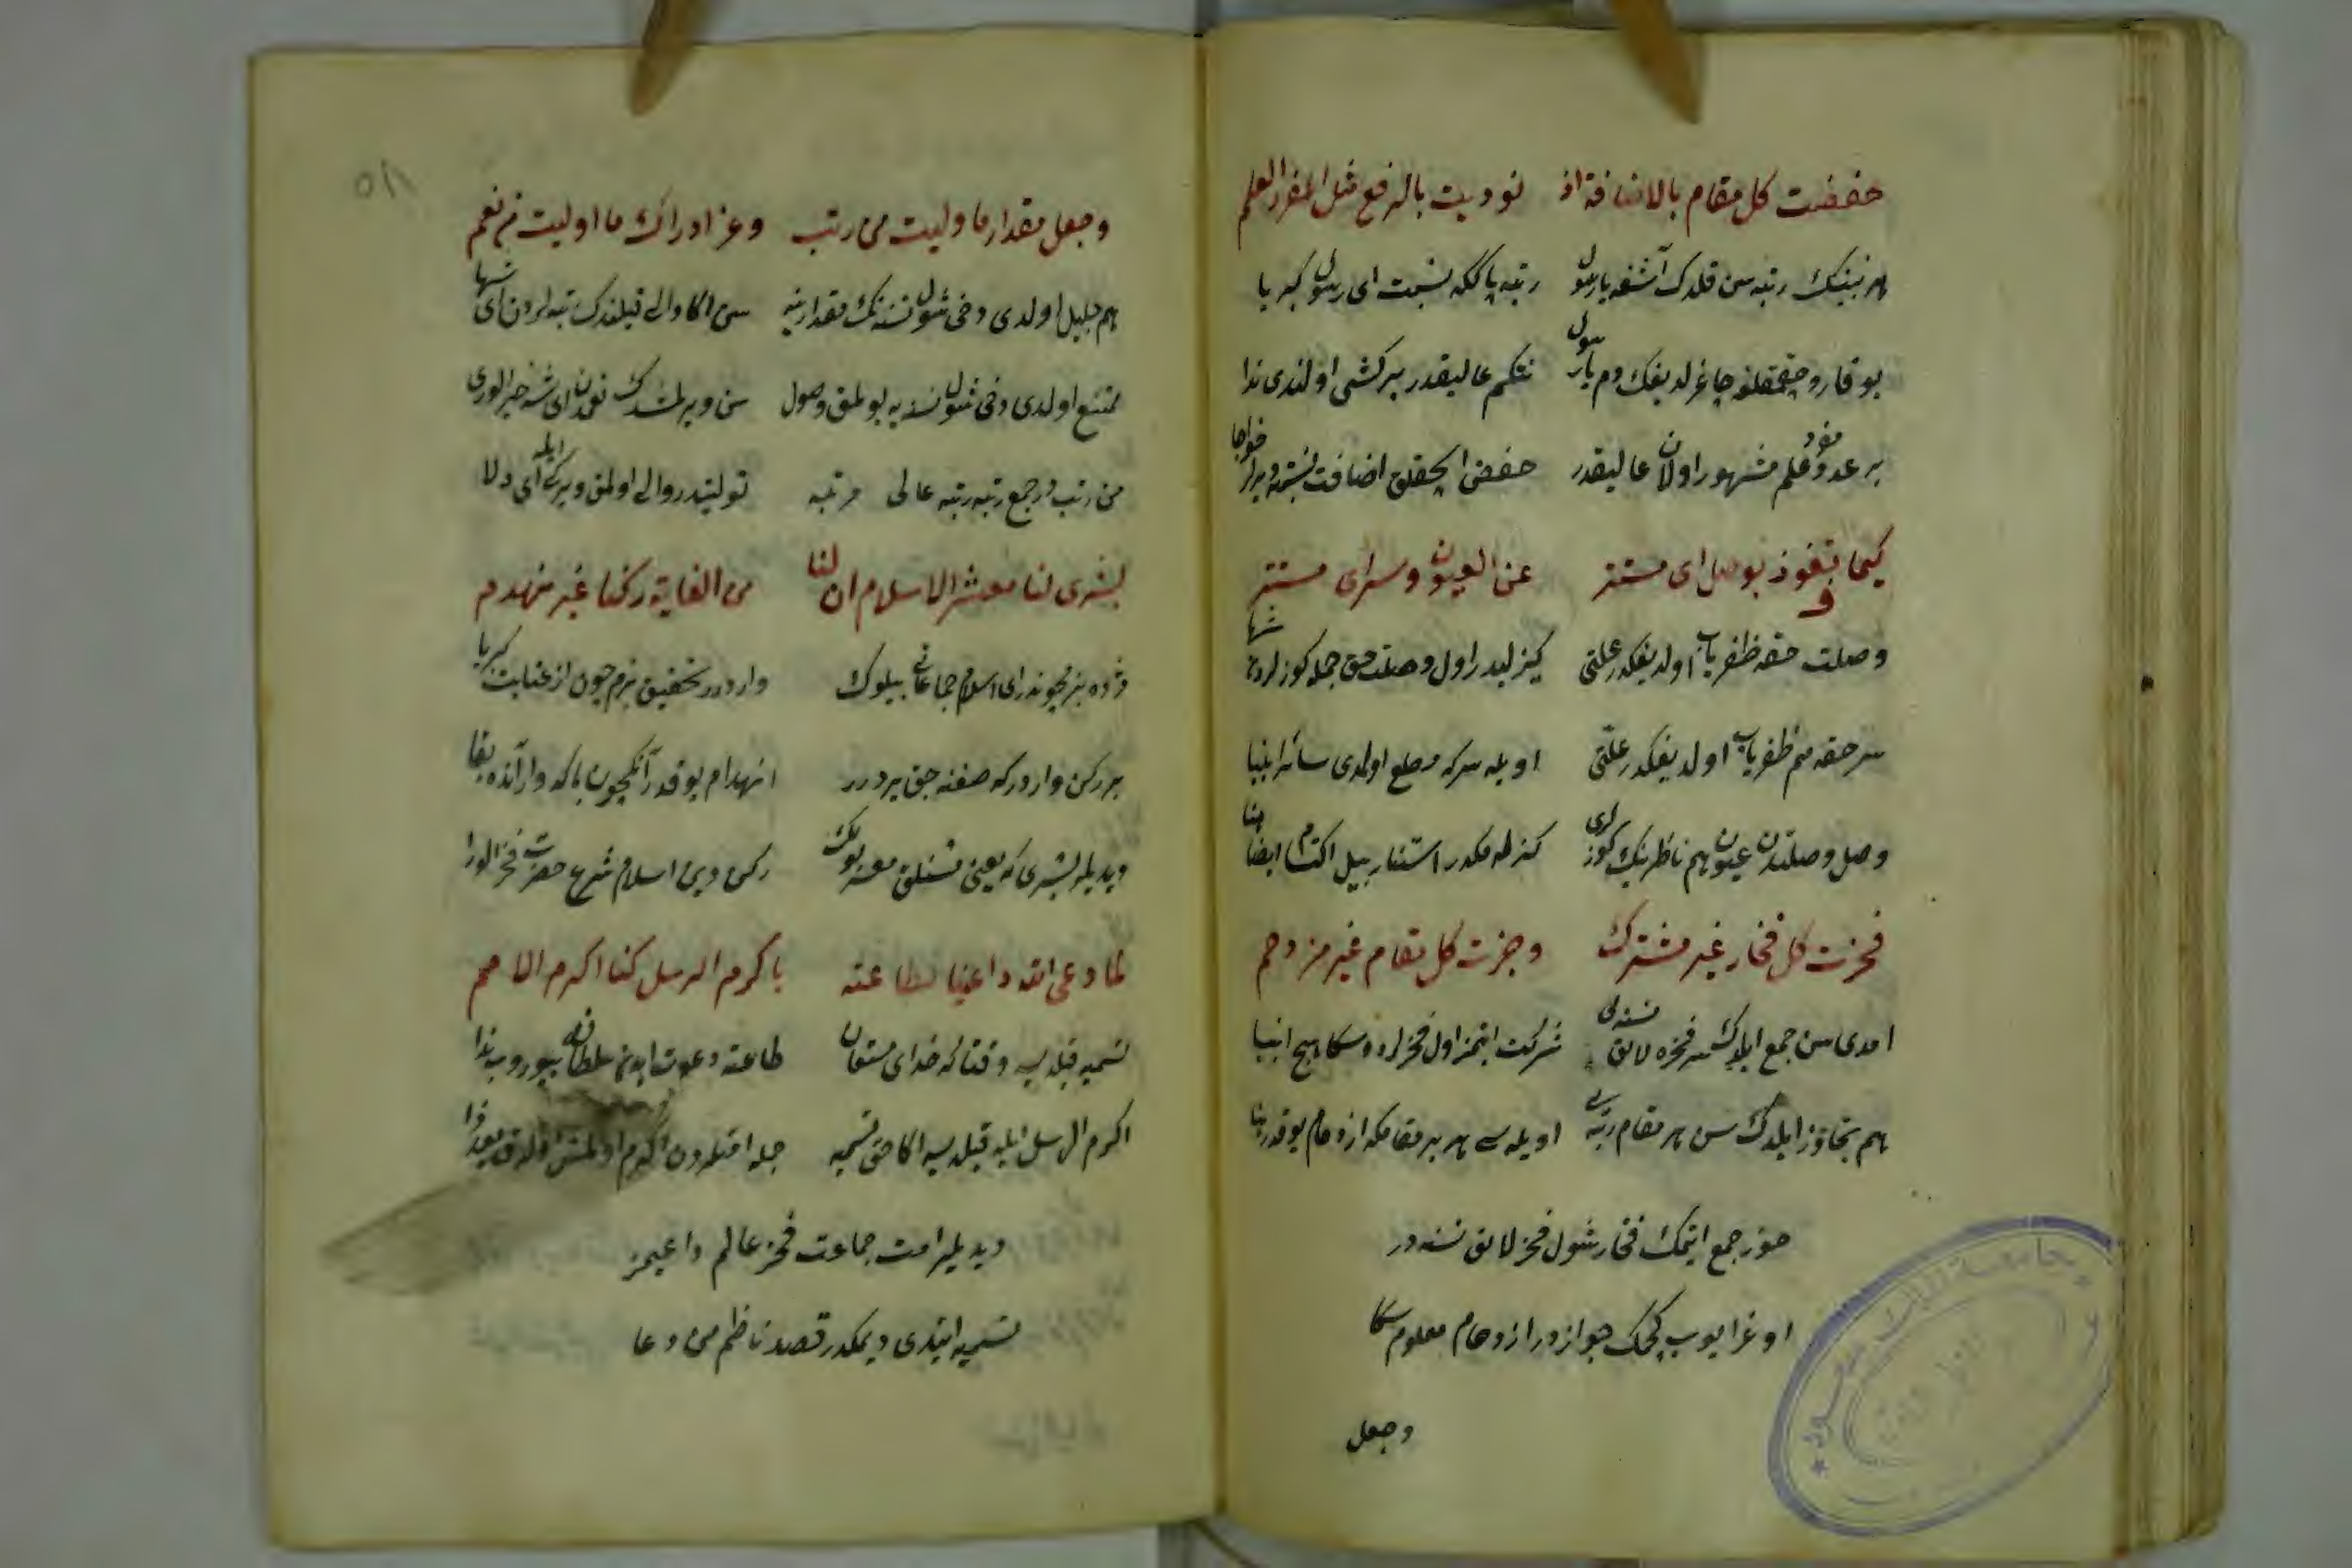 خفضت كل مقام بالاضافة اذ نوديت بالرفع مثل المفرد العلم
هر نبينك رتبه سن قلدك آشغه يا رسول رتبه پاككه نسبت اى رسول كبريا
يوقارو چقمقلغه چاغرلديغك دم يا رسول نتكم عاليقدر بر كشى اولندى ندا
بر عدو مفرد علم مشهور اولان عاليقدر خفض الچقلق اضافت نسبت
كيما تفوز بوصل اى مستتر عن العيون وسر اى مستتر
وصلت حقه ظفرياب اولديغكدر علتى كيزليدر اول وصلت حق جمله كوزلردن شها
سر حقه هم ظفرياب اولديغكدر علتى اويله سر كه مطلع اولمدى سائر انبيا
وصل وصلتدن عيون هم ناظرينك كوزلرى كزلمكدر استتار بيل اكتتام ايضا
فحزت كل فخار غير مشترك وجزت كل مقام غير مزدحم
امدى سن جمع ايلدك هر فخره لائق نسنه يى شركت ايتمز اول فخرلرده سكا هيچ انبيا
هم تجاوز ايلدك سن هر مقام رتبه يى اويله سى هر بر مقامكه ازدحام يوقدر
حوز جمع ايتمك فخار شول فخر لايق نسنه در
اوغرايوب كچمك جوازدر ازدحام معلوم سكا
وجعل
وجعل مقدار ما وليت من رتب وعز ادراك ما اوليت من نعم
هم جليل اولدى دخى شول نسنه نك مقدارينه سن اكا والى قيلندك رتبه لردن اى شها
ممتنع اولدى دخى شول نسنه يه بولمق وصول سن ويرلمشدك نعمدن اى شه خير الورى
من رتب در جمع رتبه رتبه عالى مرتبه توليتدر والى اولمق ويرلك ايله اى دلا
بشرى لنا معشر الاسلام ان لنا من العناية ركنا غير منهدم
مژده بزمچوندر اى اسلام جماعاتى بيلوك واردر تحقيق بزمچون از عنايت كبريا
بر ركن واردر كه صفنه جق يردر انهدام يوقدر آنكچون باكه وار آنده بقا
ديديلر بشرى كه يعنى مشتلق معنه ركن دين اسلام شرع حضرت فخر الورا
لما دعى الله داعينا لطاعته باكرم الرسل كنا اكرم الامم
تسميه قيلديسه وقتا كه خداى مستعان طاعته دعوت ايدن سلطانى بيوروب ندا
اكرم الرسل ايله قيلديسه اكا حق تسميه جمله امتلردن اكرم اولمش اولدق
ديديلر امت جماعت فخر عالم داعيمز
تسميه ايتدى ديمكدر قصد ناظم من دعا